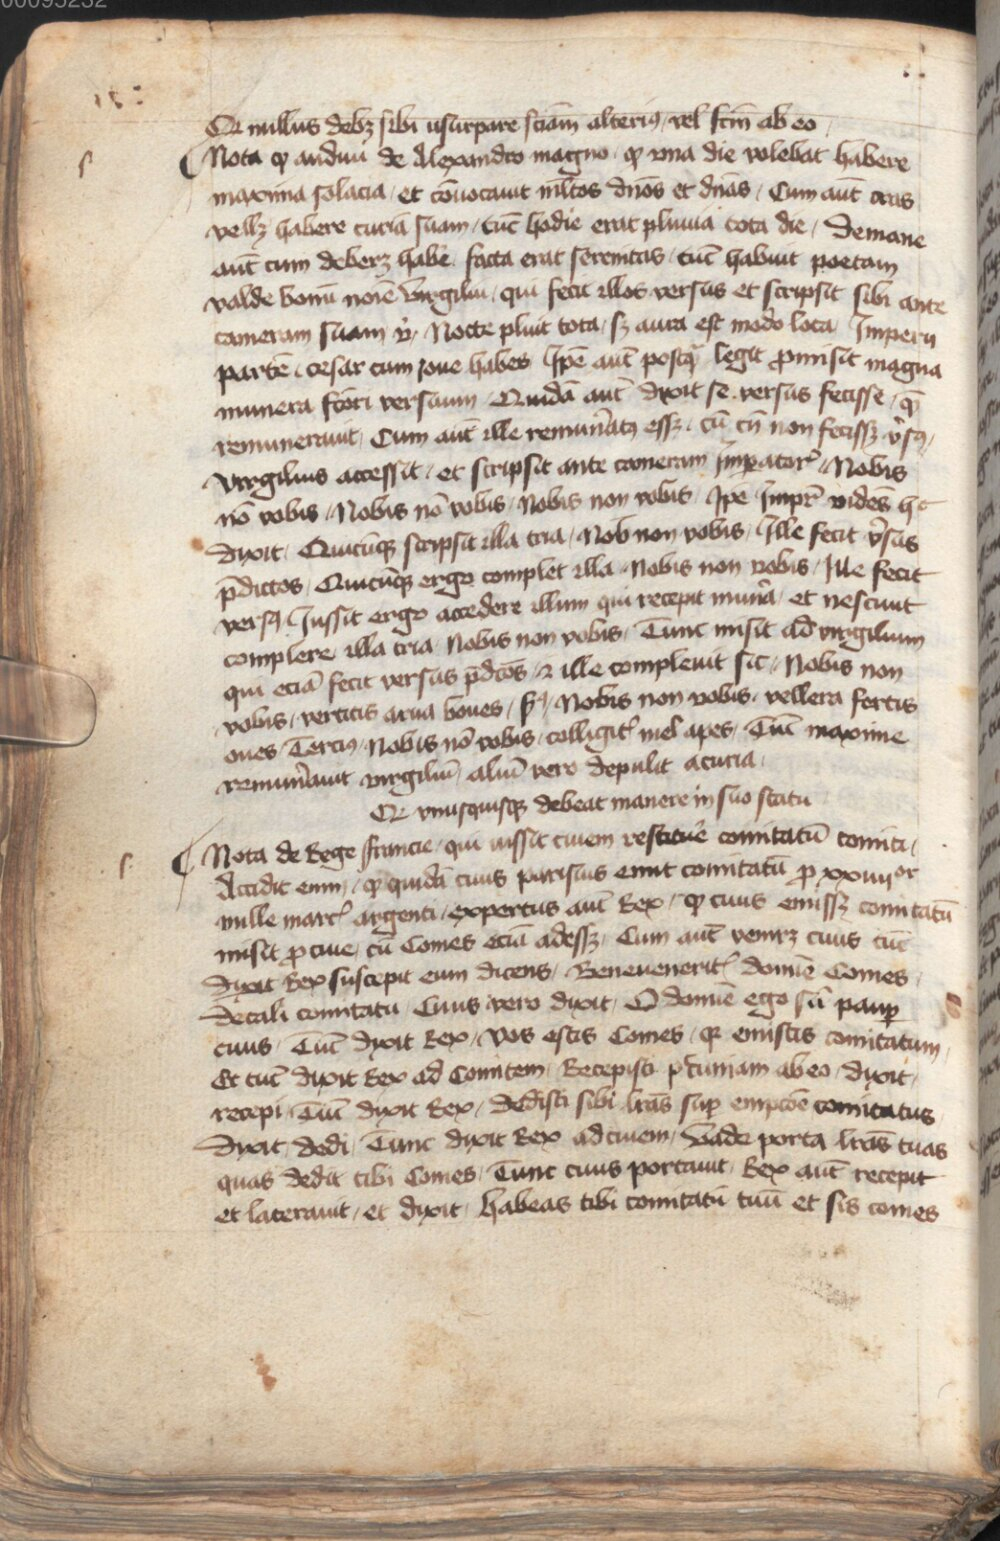 00095232
Qr nullus debꝫ sibi usurpare sciam̄ alteriꝰ vel fcm̄ ab eo
Nota ꝙ audiui de Alexandro magno ꝙ vna die volebat habere
maxima solacia / et cōuocauit ml̄tos dn̄os et dn̄as / Cum aut̄ cras
vellꝫ habere curiā suam / tūc hodie erat pluuia tota die / De mane
aut̄ cum deberꝫ habē facta erat serenitas / tūc habuit poetam
valde bonū noīe Virgiliū / qui fecit illos versus et scripsit sibi ante
cameram suam / Nocte pluit tota / sꝫ aura est modo lota / Imperij
partē / cesar cum Joue habes Ip̄e aut̄ postꝙ legit ꝓmisit magna
munera fc̄ori versuum Quidā aut̄ dixit se versus fecisse / qm̄
remunerauit / Cum aut̄ ille remun̄atꝰ essꝫ / cū tn̄ non fecissꝫ v̄sꝰ /
Virgilius accessit / et scripsit ante cameram Imꝑator̄ / Nobis
nō vobis / Nobis nō vobis / Nobis non vobis / Ip̄e Impr̄ videns hᵒ
dixit / Quicūqꝫ scripsit illa tria / Nob non vobis / Ille fecit v̄sus
p̄dictos / Quicūqꝫ ergo complet illa Nobis non vobis / Ille fecit
versꝰ / Jussit ergo accedere illum qui recepit mun̄a / et nesciuit
complere illa tria Nobis non vobis / Tunc misit ad virgilium
qui eciā fecit versus p̄dcōs / ⁊ ille compleuit sic / Nobis non
vobis / vertitis arua boues / Nobis non vobis / vellera fertis
oues / Terciꝰ / Nobis nō vobis / colligit᷑ mel apes / Tūc maxime
remun̄auit virgiliū / aliū vero depulit a curia
Qr vnusquisqꝫ debeat manere in suo statu
Nota de Rege francie / qui iussit ciuem restituē comitatū comiti /
Accidit enim / ꝙ quidā ciuis parisius emit comitatū ꝓ xxiiiiᵒʳ
mille marc᷑ argenti / expertus aut̄ Rex / ꝙ ciuis emissꝫ comitatū
misit ꝓ ciue / cū Comes eciā adessꝫ / Cum aut̄ venirꝫ ciuis tūc
dixit Rex suscepit eum dicens / Beneuenerit᷑ domīe Comes /
de tali comitatu / Ciuis vero dixit / O domīe ego sū pauꝑ
ciuis / Tūc dixit Rex / vos estis Comes / qr emistis comitatum /
Et tūc dixit Rex ad Comitem / Recepisti pecuniam ab eo / dixit /
recepi / Tūc dixit Rex / dedisti sibi lr̄as suꝑ empcōe comitatus
dixit / dedi / Tunc dixit Rex ad ciuem / Vade porta lr̄as tuas
quas dedit tibi Comes / Tunc ciuis portauit / Rex aut̄ recepit
et lacerauit / et dixit / habeas tibi comitatū tuū et sis comes